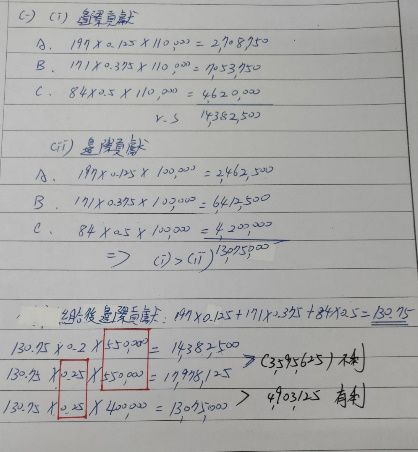 (一) (i) 邊際貢獻
A. 197 × 0.125 × 110,000 = 2,708,750
B. 171 × 0.375 × 110,000 = 7,053,750
C. 84 × 0.5 × 110,000 = 4,620,000
v.s 14,382,500
(ii) 邊際貢獻
A. 197 × 0.125 × 100,000 = 2,462,500
B. 171 × 0.375 × 100,000 = 6,412,500
C. 84 × 0.5 × 100,000 = 4,200,000
⇒ (i) > (ii) 13,075,000
組合後邊際貢獻: 197 × 0.125 + 171 × 0.375 + 84 × 0.5 = 130.75
130.75 × 0.2 × 550,000 = 14,382,500
> (3,595,625) 不利
130.75 × 0.25 × 550,000 = 17,978,125
> 4,903,125 有利
130.75 × 0.25 × 400,000 = 13,075,000